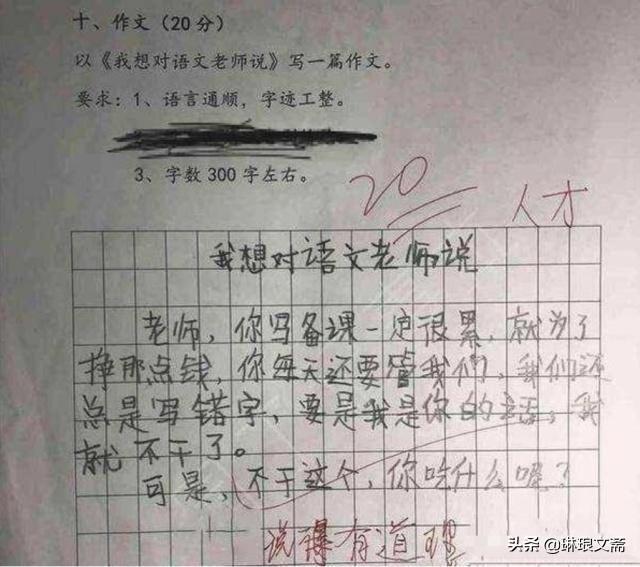 十、作文（20分）
以《我想对语文老师说》写一篇作文。
要求：1、语言通顺，字迹工整。
3、字数300字左右。
20
人才
我想对语文老师说
老师，你写备课一定很累，就为了
挣那点钱，你每天还要管我们，我们还
总是写错字，要是我是你的话，我
就不干了。
可是，不干这个，你吃什么呢？
说得有道理
头条@琳琅文斋